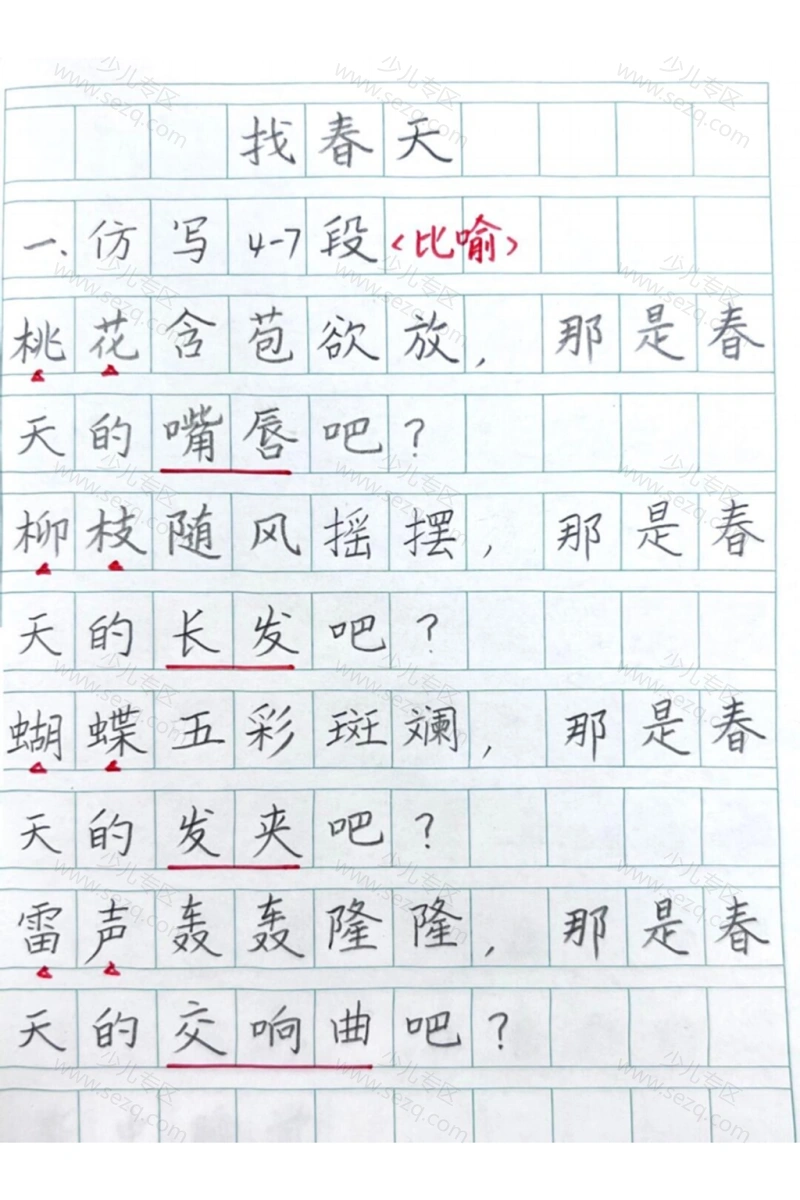 找春天
一、仿写4-7段<比喻>
桃花含苞欲放,那是春
天的嘴唇吧?
柳枝随风摇摆,那是春
天的长发吧?
蝴蝶五彩斑斓,那是春
天的发夹吧?
雷声轰轰隆隆,那是春
天的交响曲吧?
少儿专区
www.sezq.com